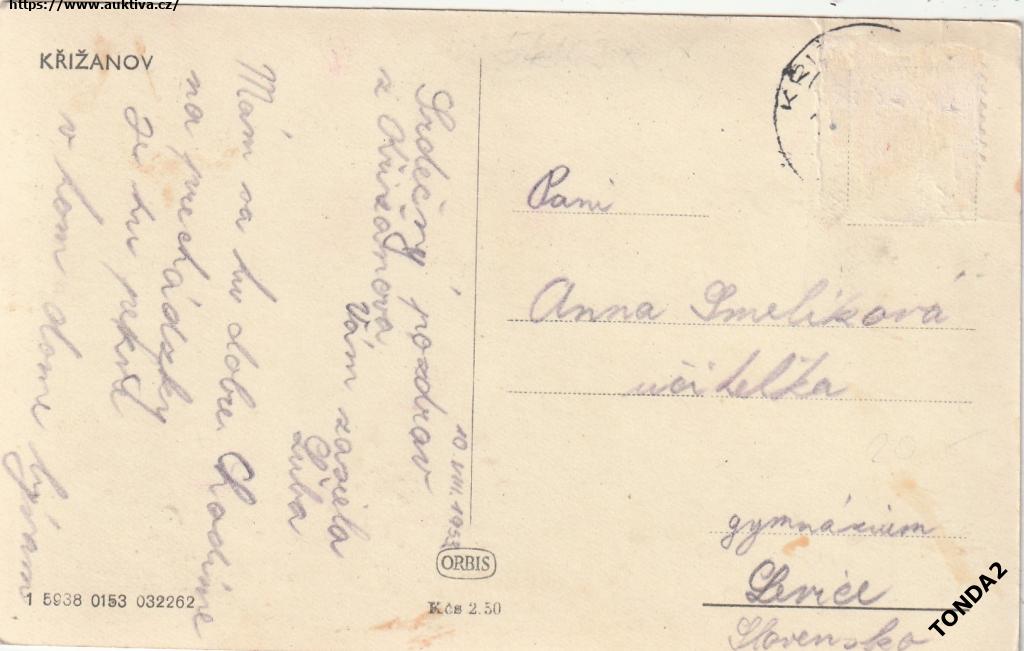 https://www.auktiva.cz/
KŘIŽANOV
Srdečný pozdrav
z Křižanova
Vám zasiela
Ľuba
10. VIII. 1953
Mám sa tu dobre Chodíme
na prechádzky
je tu pekne
v tom dome bývam
Pani
Anna Smelíková
učitelka
gymnázium
Levice
Slovensko
ORBIS
Kčs 2.50
1 5938 0153 032262
TONDA2